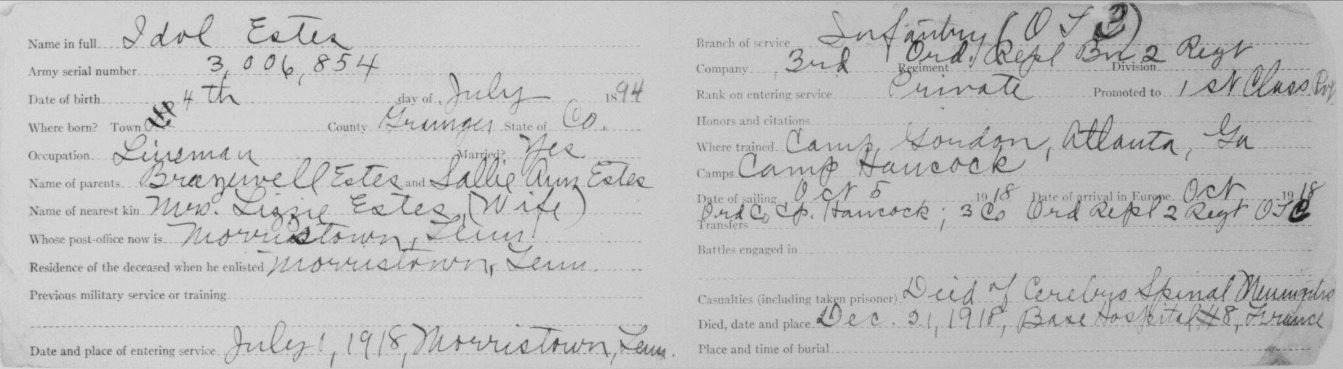 Name in full Idol Estes
Army serial number 3,006,854
Date of birth 4th day of July 1894
Where born? Town County Grainger State of Co.
Occupation Lineman Married? Yes
Name of parents Brazewell Estes and Sallie Ann Estes
Name of nearest kin Mrs. Lizzie Estes (Wife)
Whose post-office now is Morristown, Tenn.
Residence of the deceased when he enlisted Morristown, Tenn.
Previous military service or training
Date and place of entering service July 1, 1918, Morristown, Tenn.
Branch of service Infantry (O T C)
Company 3rd Regiment Ord. Repl Bn 2 Regt Division
Rank on entering service Private Promoted to 1st Class Pvt
Honors and citations
Where trained Camp Gordon, Atlanta, Ga
Camps Camp Hancock
Date of sailing Oct 5 1918 Date of arrival in Europe Oct 1918
Transfers Ord C, Cp. Hancock; 3 Co Ord Repl 2 Regt O T C
Battles engaged in
Casualties (including taken prisoner) Died of Cerebro Spinal Meningitis
Died, date and place Dec. 21, 1918, Base Hospital #8, France
Place and time of burial